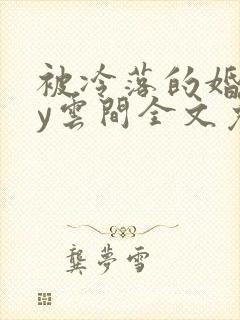 被冷落的婚
y雲間全文
龔夢雪